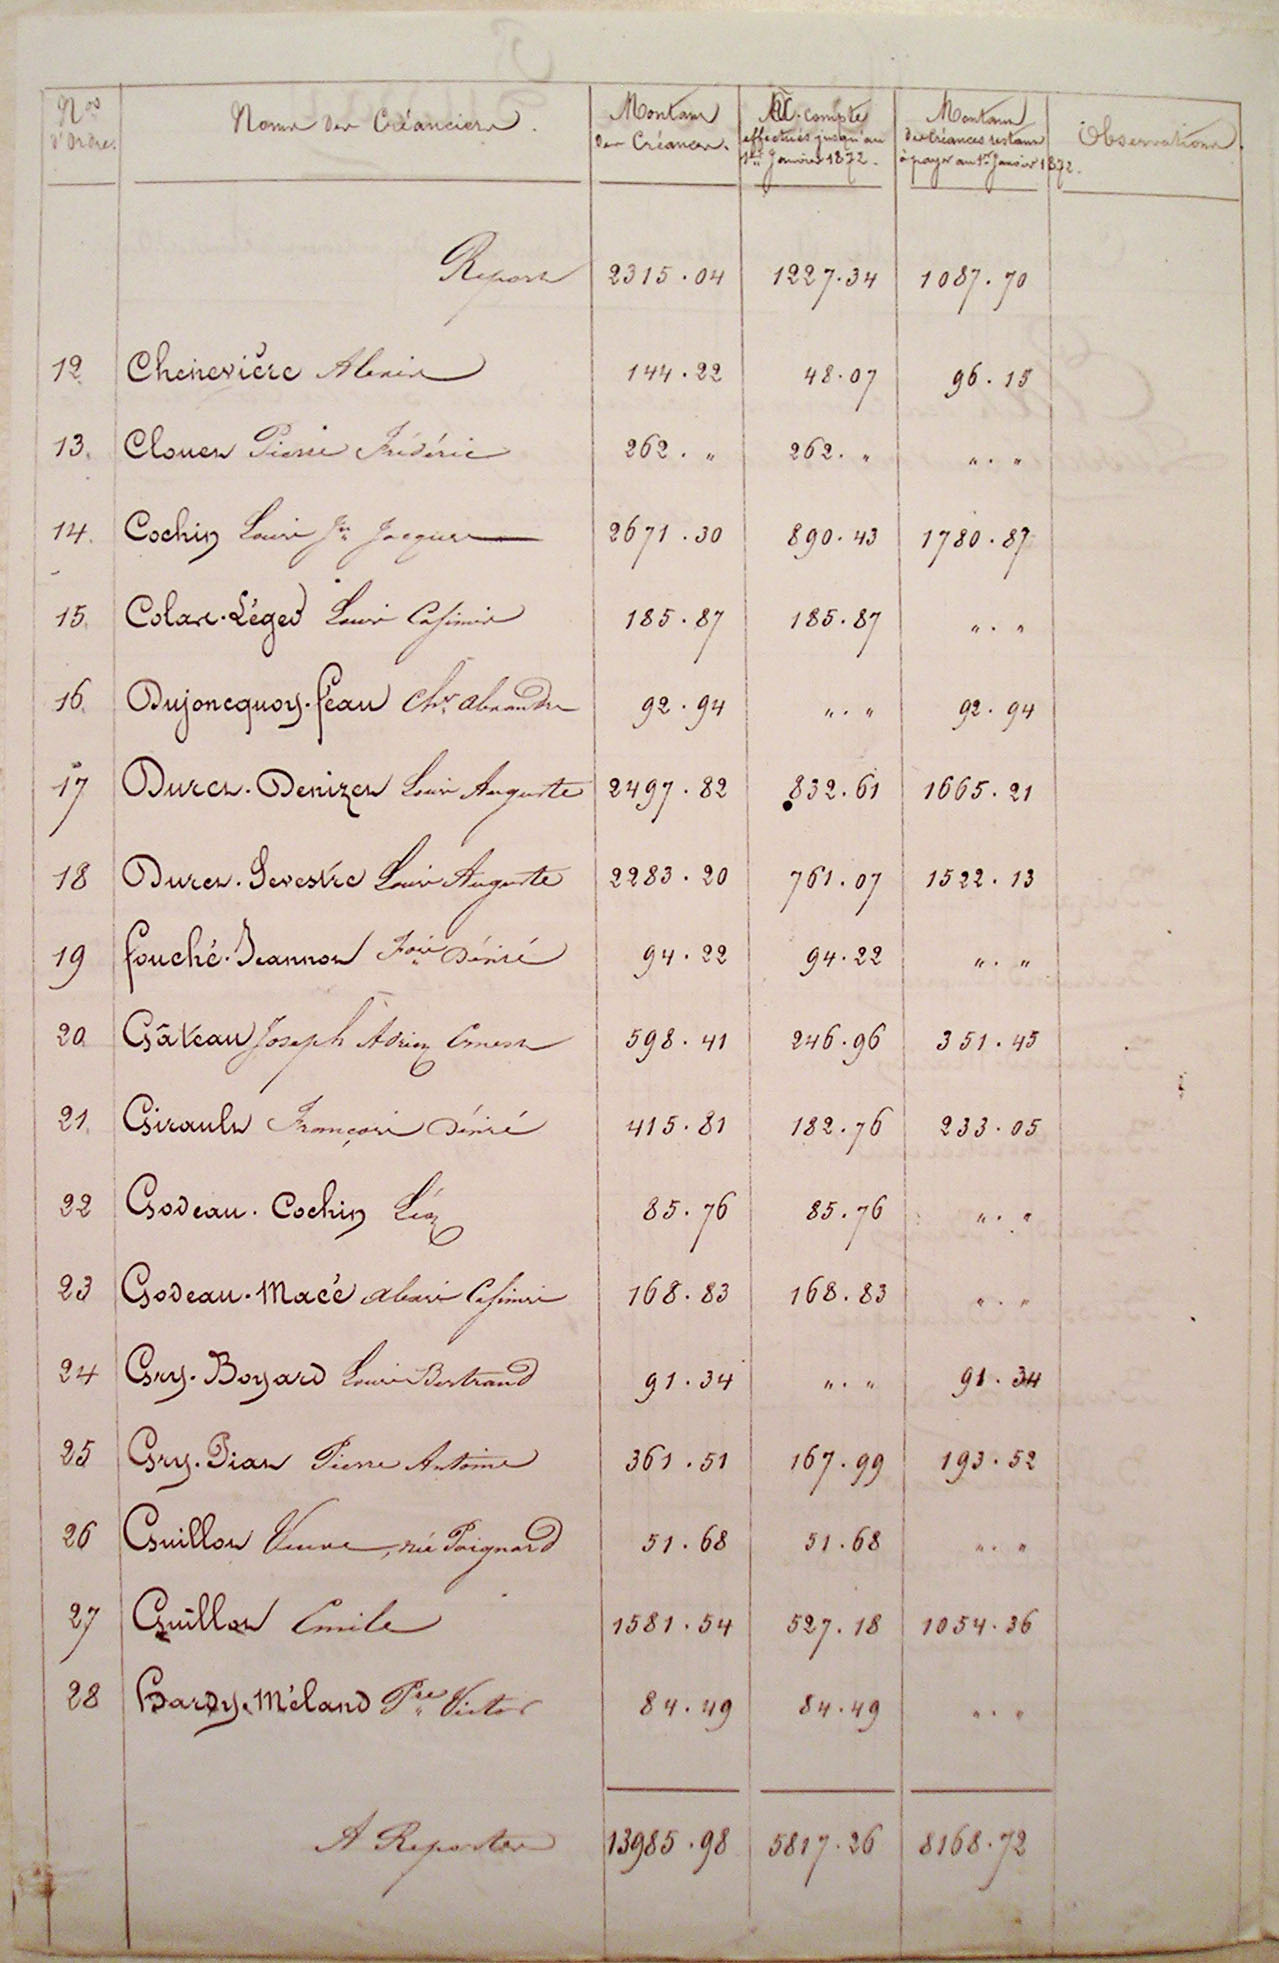 Nos d'Ordre. Noms des Créanciers. Montant des Créances. A compte effectués jusqu'au 1er Janvier 1872. Montant des Créances restant à payer au 1er Janvier 1872. Observations.
Report 2315.04 1227.34 1087.70
12. Chenevière Alexis 144.22 48.07 96.15
13. Clouet Pierre Frédéric 262. „ 262. „ „ . „
14. Cochin Louis Jn Jacques 2671.30 890.43 1780.87
15. Colas. Léger Louis Casimir 185.87 185.87 „ . „
16. Dujoncquoy. féau Chs Alexandre 92.94 „ . „ 92.94
17 Duret. Denizet Louis Auguste 2497.82 832.61 1665.21
18 Duret. Sevestre Louis Auguste 2283.20 761.07 1522.13
19 fouché. Jeannot Désiré 94.22 94.22 „ . „
20. Gâteau Joseph Adrien Ernest 598.41 246.96 351.45
21. Girault François Désiré 415.81 182.76 233.05
22 Godeau. Cochin Léon 85.76 85.76 „ . „
23 Godeau. Macé Casimir 168.83 168.83 „ . „
24 Gry. Boyard Louis Bertrand 91.34 „ . „ 91.34
25 Gry. Piat Pierre Antoine 361.51 167.99 193.52
26 Guillot Veuve, née Poignard 51.68 51.68 „ . „
27 Guillot Emile 1581.54 527.18 1054.36
28 Hardy. Méland Pre Victor 84.49 84.49 „ . „
A Reporter 13985.98 5817.26 8168.72